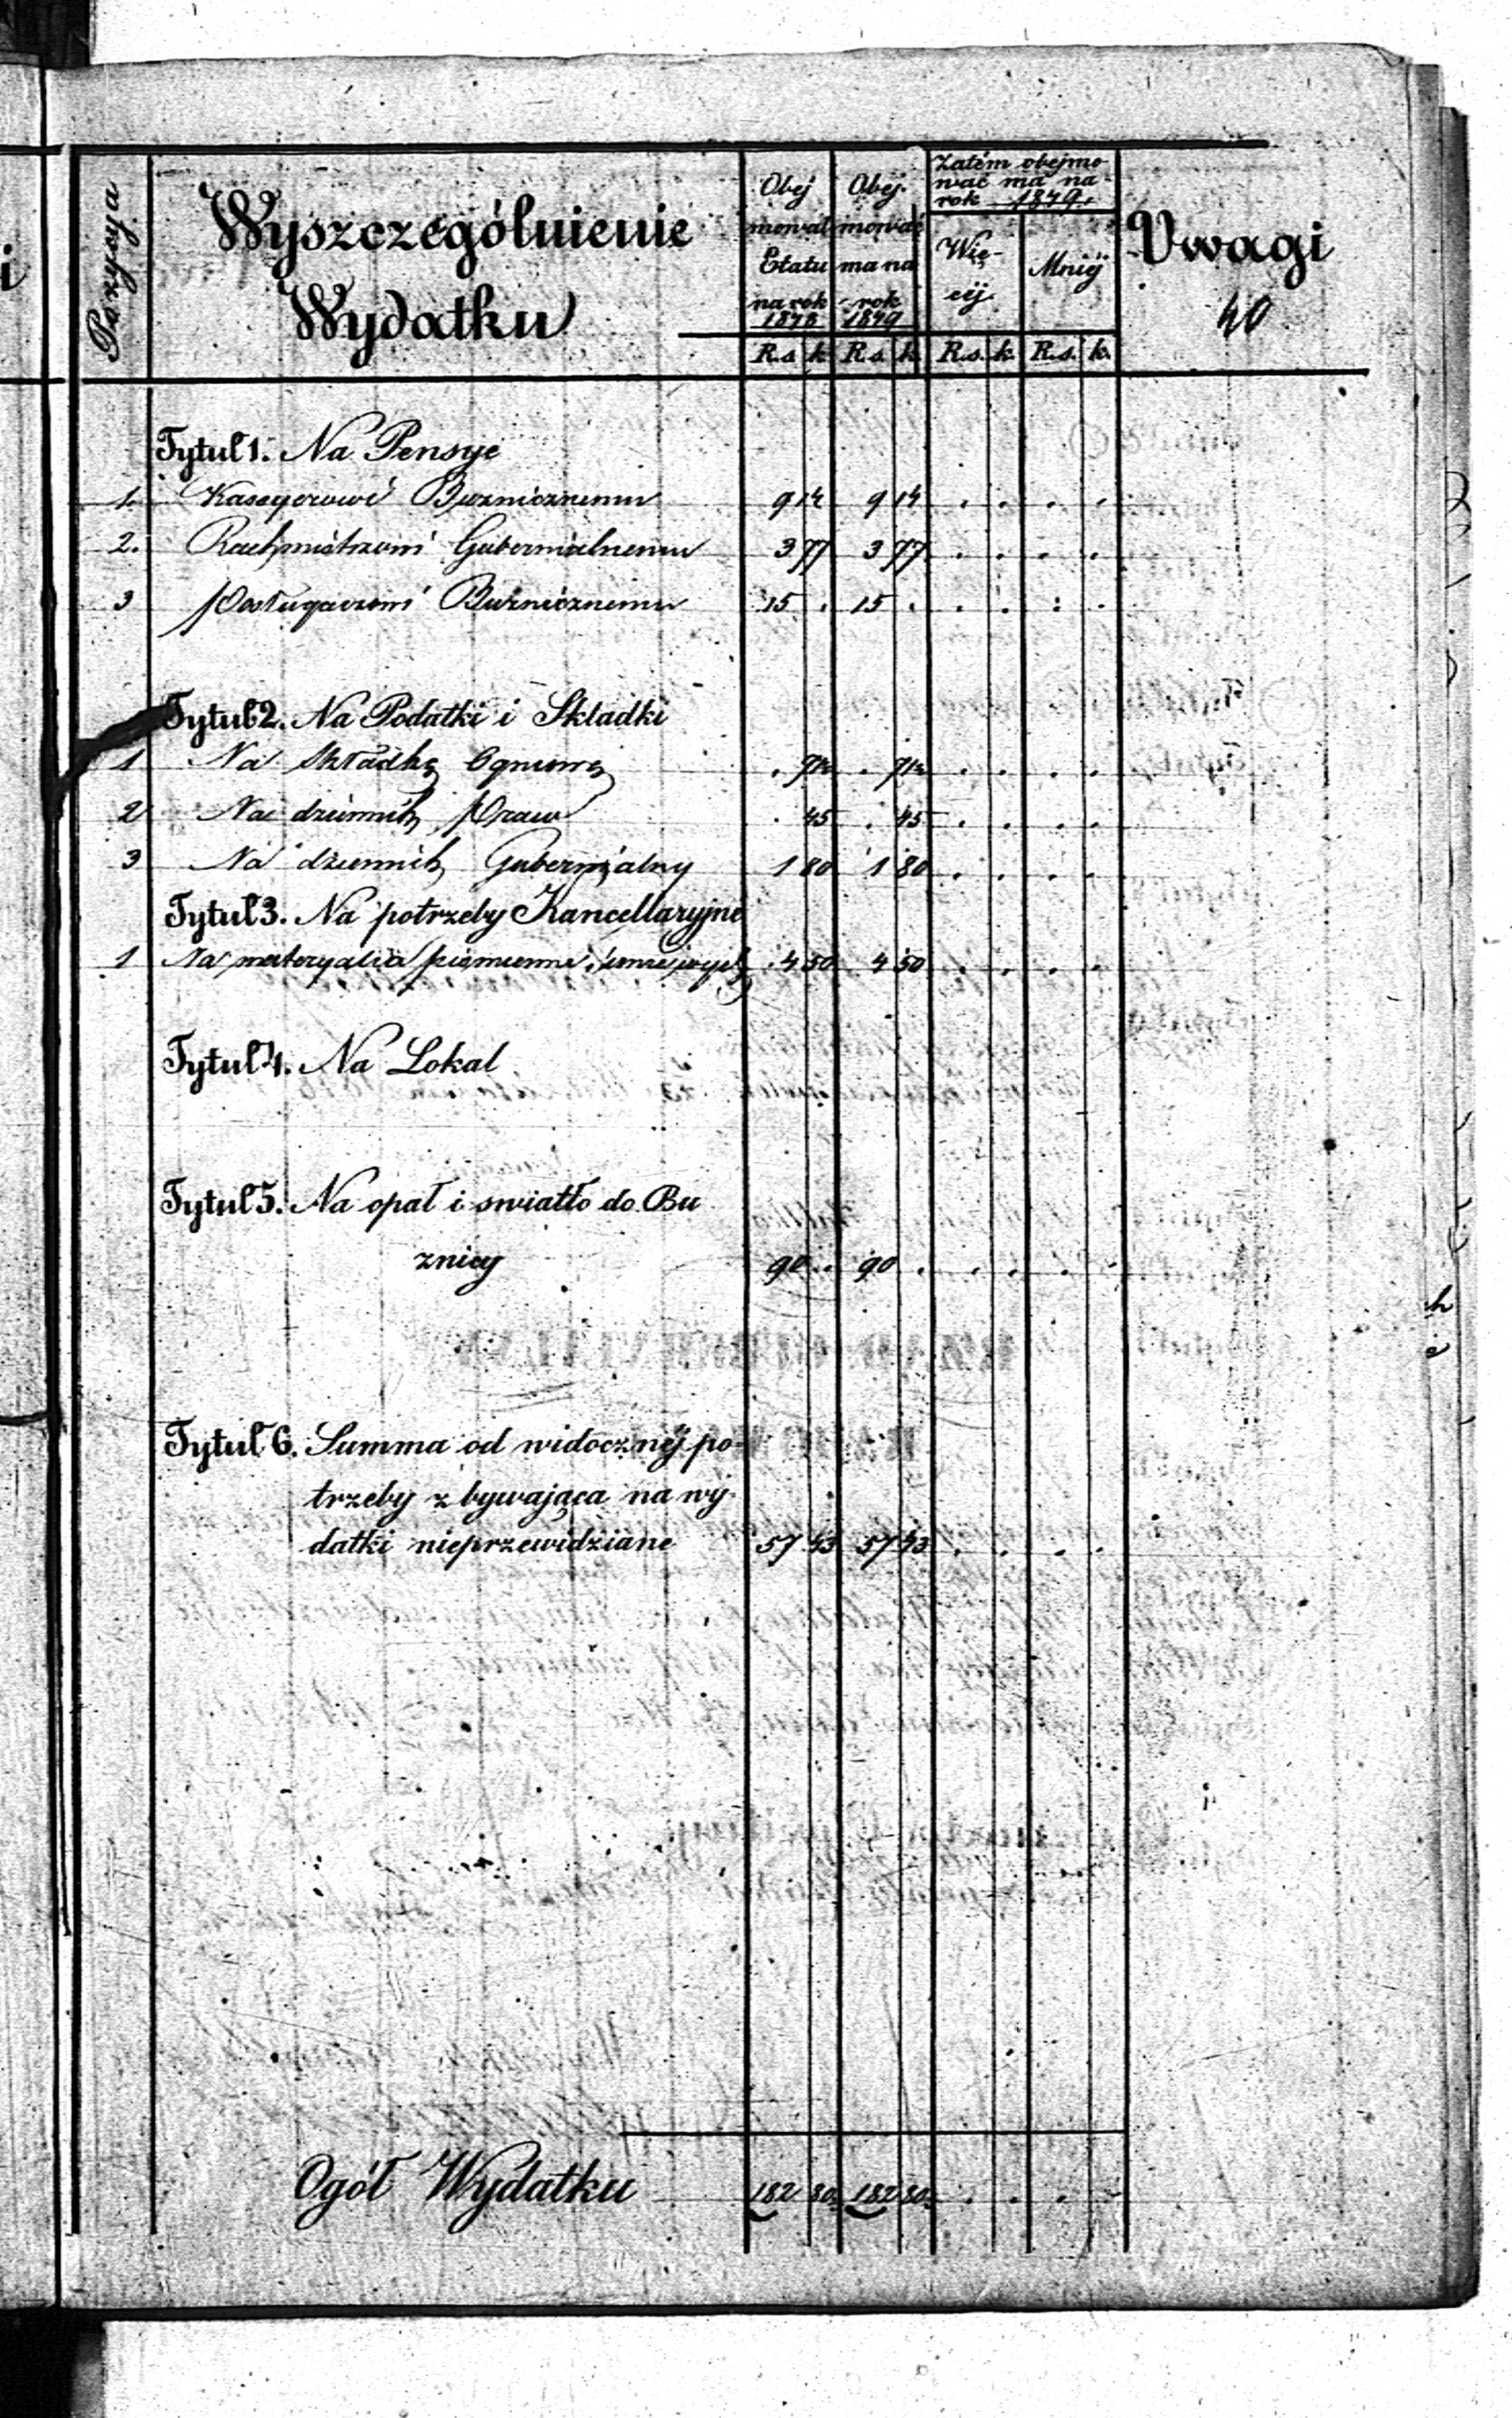 Pozycya
Wyszczególnienie
Wydatku
Obej
mował
Etatu
na rok
1848
Obej-
mować
ma na
rok
1849
Zatém obejmo
wać ma na
rok 1849.
Wię-
céj
Mniéj
Uwagi
40
R.s. k. R.s. k. R.s. k. R.s. k.
Tytuł 1. Na Pensye
1. Kassyerowi Bużnicznemu 9 14 9 14 . . . .
2. Rachmistrzowi Gubernialnemu 3 77 3 77 . . . .
3 Posługaczowi Bużnicznemu 15 . 15 . . . : .
Tytuł 2. Na Podatki i Składki
1 Na Składkę Ogniową . . . . . .
2 Na dziennik Praw . 45 . 45 . . . .
3 Na dziennik Gubernialny 1 80 1 80 . . . .
Tytuł 3. Na potrzeby Kancellaryjne
1 Na materyalia piśmienne 4 50 4 50 . . . .
Tytuł 4. Na Lokal
Tytuł 5. Na opał i swiatło do Bu
znicy 90 .. 90 . . . . .
Tytuł 6. Summa od widocznéj po-
trzeby zbywająca na wy-
datki nieprzewidziane 57 43 57 43 . . . .
Ogół Wydatku 182 80. 182 80. . . . .